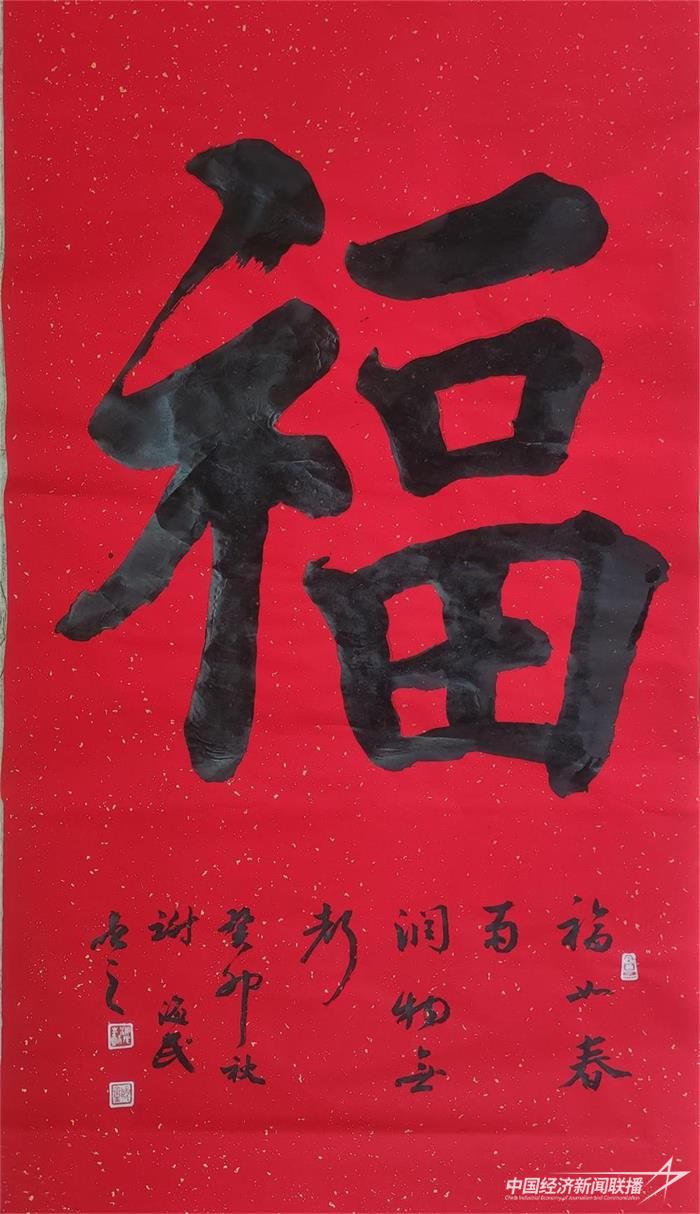 福
福如春
雨
润物无
声
癸卯秋
谢海民
书之
中国经济新闻联播
China Industrial Economy of Journalism and Communication